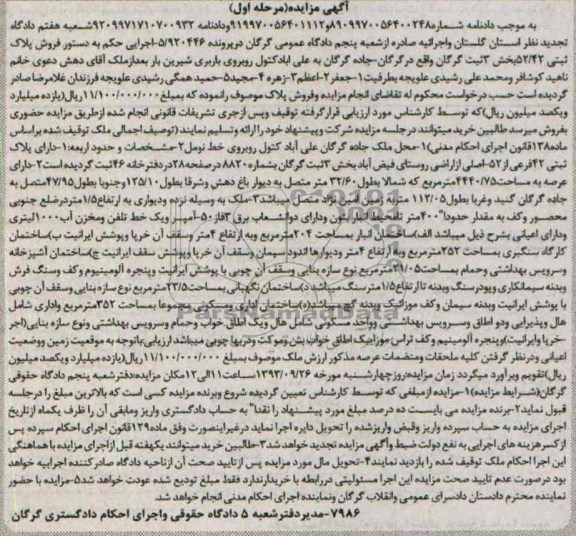 آگهی مزایده(مرحله اول)
به موجب دادنامه شماره۸۹۰۹۹۷۰۰۵۶۴۰۰۲۴۸و۹۱۹۹۷۰۰۵۶۴۰۱۱۱۲ودادنامه ۹۲۰۹۹۷۱۷۱۰۷۰۰۹۳۲شعبه هفتم دادگاه
تجدید نظر استان گلستان واجرائیه صادره ازشعبه پنجم دادگاه عمومی گرگان درپرونده ۵/۹۲۰۴۴۶-اجرایی حکم به دستور فروش پلاک
ثبتی ۵۲/۴۲بخش ۳ثبت گرگان واقع درگرگان-جاده گرگان به علی ابادکتول روبروی باربری شیرین بار بعدازملک آقای دهش دعوی خانم
ناهید کوشافر ومحمد علی رشیدی علویجه بطرفیت۱-جعفر۲-اعظم۳-زهره ۴-مجید۵-حمید همگی رشیدی علویجه فرزندان غلامرضا صادر
گردیده است حسب درخواست محکوم له تقاضای انجام مزایده وفروش پلاک موصوف رانموده که بمبلغ۱۱/۱۰۰/۰۰۰/۰۰۰ریال(یازده میلیارد
ویکصد میلیون ریال)که توسط کارشناس مورد ارزیابی قرارگرفته توقیف وپس ازجری تشریفات قانونی انجام شده ازطریق مزایده حضوری
بفروش میرسد طالبین خرید میتوانند درجلسه مزایده شرکت وپیشنهاد خود را ارائه وتسلیم نمایند (توصیف اجمالی ملک توقیف شده براساس
ماده۱۳۸قانون اجرای احکام مدنی)۱-محل ملک جاده گرگان علی آباد کتول روبروی خط نومل۲-مشخصات و حدود اربعه:۱-دارای پلاک
ثبتی ۴۲فرعی از۵۲-اصلی ازاراضی روستای فیض آبادبخش ۳ثبت گرگان بشماره ۸۸۲۰صفحه۲۸دردفترخانه ۴۶ثبت گردیده است۲-دارای
عرصه به مساحت۴۴۴۰/۷۵مترمربع که شمالا بطول۳۲/۶۰ متر متصل به دیوار باغ دهش وشرقا بطول۱۲۵/۱۰وجنوبا بطول۴۷/۹۵متصل به
جاده گرگان گنبد وغربا بطول۱۱۲/۰۵ متصل میباشد۳-ملک به وسیله نرده ودیواری به ارتفاع۱/۵متردرضلع جنوبی
محصور وکف به مقدار حدودا"۴۰۰متر ودارای دوانشعاب برق ۳فاز۵۰-آمپر ویک خط تلفن ومخزن آب۱۰۰۰لیتری
ودارای اعیانی بشرح ذیل میباشد الف)ساختمان انبار بمساحت ۲۰۴مترمربع وبه ارتفاع ۴متر وسقف آن خرپا وپوشش ایرانیت ب)ساختمان
کارگاه سنگبری بمساحت ۲۵۲مترمربع به ارتفاع ۴متر ودیوارها اندود سیمان وسقف آن خرپا وپوشش سقف ایرانیت ج)ساختمان آشپزخانه
وسرویس بهداشتی وحمام بمساحت۲۹/۰۵مترمربع نوع سازه بنایی وسقف آن چوبی با پوشش ایرانیت وپنجره آلومینیوم وکف وسنگ فرش
وبدنه سیمانکاری وپودرسنگ وبدنه تاارتفاع۱/۵مترسنگ میباشد د)ساختمان نگهبانی بمساحت۲۳/۵مترمربع نوع سازه بنایی وسقف آن چوبی
با پوشش ایرانیت وبدنه سیمان وکف موزائیک وبدنه گچ میباشد(ه)ساختمان اداری ومسکونی مجموعا بمساحت ۳۵۲مترمربع واداری شامل
هال وپذیرایی ودو اطاق وسرویس بهداشتی وواحد مسکونی شامل هال ویک اطاق خواب وحمام وسرویس بهداشتی ونوع سازه بنایی(اجر
-خرپا وایرانیت)وپنجره آلومینیم وکف تراس موزائیک اطاق خواب بتن وموکت ودربها چوبی میباشد ارزیابی:باتوجه به موقعیت زمین ووضعیت
اعیانی ودرنظر گرفتن کلیه ملحقات ومنضمات عرصه مذکور ارزش ملک موصوف بمبلغ ۱۱/۱۰۰/۰۰۰/۰۰۰ریال(یازده میلیارد ویکصد میلیون
ریال)تقویم وبرآورد میگردد زمان مزایده:روزچهارشنبه مورخه ۱۳۹۳/۰۹/۲۶ساعت۱۱الی۱۲مکان مزایده:دفترشعبه پنجم دادگاه حقوقی
گرگان(شرایط مزایده)۱-مزایده ازمبلغی که توسط کارشناس تعیین گردیده شروع وبرنده مزایده کسی است که بالاترین مبلغ را درجلسه
قبول نماید۲-برنده مزایده می بایست ده درصد مبلغ مورد پیشنهاد را نقدا" به حساب دادگستری واریز ومابقی آن را ظرف یکماه ازتاریخ
اجرای مزایده به حساب سپرده واریز وقبض واریزشده را تحویل دایره اجرا نماید درغیراینصورت وفق ماده۱۲۹قانون اجرای احکام سپرده پس
از کسر هزینه های اجرایی به نفع دولت ضبط وآگهی مزایده تجدید خواهد شد۳-طالبین خرید میتوانند یکهفته قبل ازاجرای مزایده با هماهنگی
این اجرا احکام ملک توقیف شده را بازدید نمایند۴-تحویل مال مورد مزایده پس ازتایید صحت آن ازناحیه دادگاه صادرکننده اجراییه خواهد
بود درصورت عدم تایید صحت مزایده این اجرا مسئولیتی دررابطه با خریدارندارد فقط مبلغ تودیع شده عودت خواهد شد۵-مزایده با حضور
نماینده محترم دادستان دادسرای عمومی وانقلاب گرگان ونماینده اجرای احکام مدنی انجام خواهد شد
۷۹۸۶-مدیردفترشعبه ۵ دادگاه حقوقی واجرای احکام دادگستری گرگان
ParsNamadData